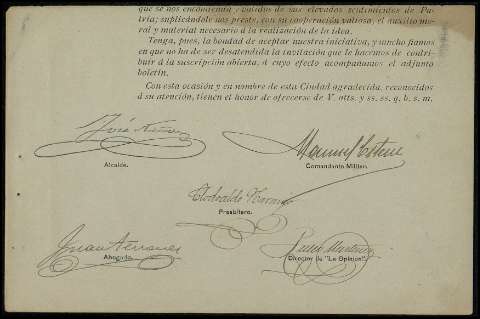 que se nos encomienda, y validos de sus elevados sentimientos de Pa-
tria; suplicándole nos preste, con su cooperación valiosa, el auxilio mo-
ral y material necesario á la realización de la idea.
Tenga, pues, la bondad de aceptar nuestra iniciativa, y mucho fiamos
en que no ha de ser desatendida la invitación que le hacemos de contri-
buir á la suscripción abierta, á cuyo efecto acompañamos el adjunto
boletín.
Con esta ocasión y en nombre de esta Ciudad agradecida, reconocidos
á su atención, tienen el honor de ofrecerse de V. atts. y ss. ss. q. b. s. m.
José
Alcalde.
Manuel Esteve
Comandante Militar.
Clodoaldo Naranjo
Presbítero.
Juan Terrones
Abogado.
Director de "La Opinión".